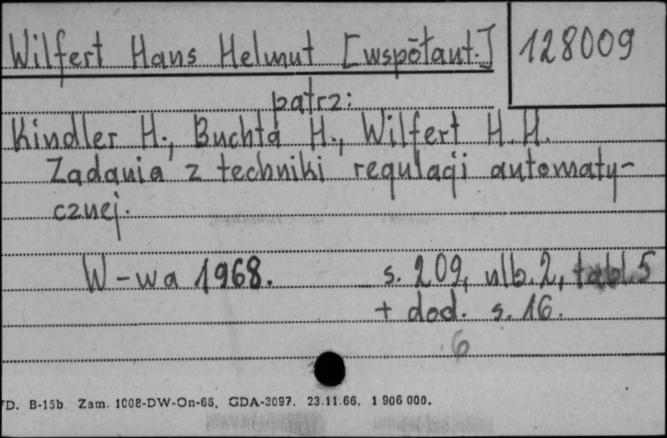 Wilfert Hans Helmut [współaut.]
128009
patrz:
Kindler H., Buchta H., Wilfert H. H.
Zadania z techniki regulacji automaty-
cznej.
W-wa 1968. s. 209, nlb. 2, tabl. 5
+ dod. s. 16.
6
D. B-15b Zam. 1008-DW-On-66, GDA-3097. 23.11.66. 1 906 000.